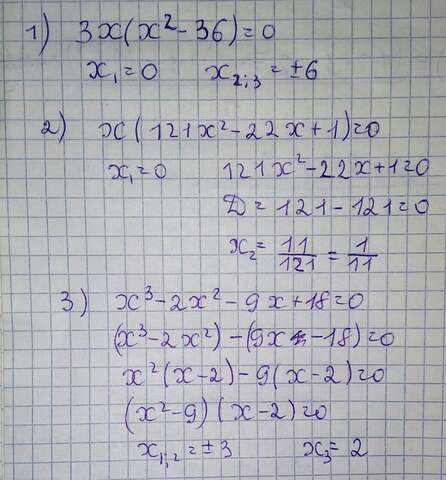 1) 3x(x²-36)=0
x₁=0 x₂;₃=±6
2) x(121x²-22x+1)=0
x₁=0 121x²-22x+1=0
D=121-121=0
x₂=11/121=1/11
3) x³-2x²-9x+18=0
(x³-2x²)-(9x-18)=0
x²(x-2)-9(x-2)=0
(x²-9)(x-2)=0
x₁;₂=±3 x₃=2